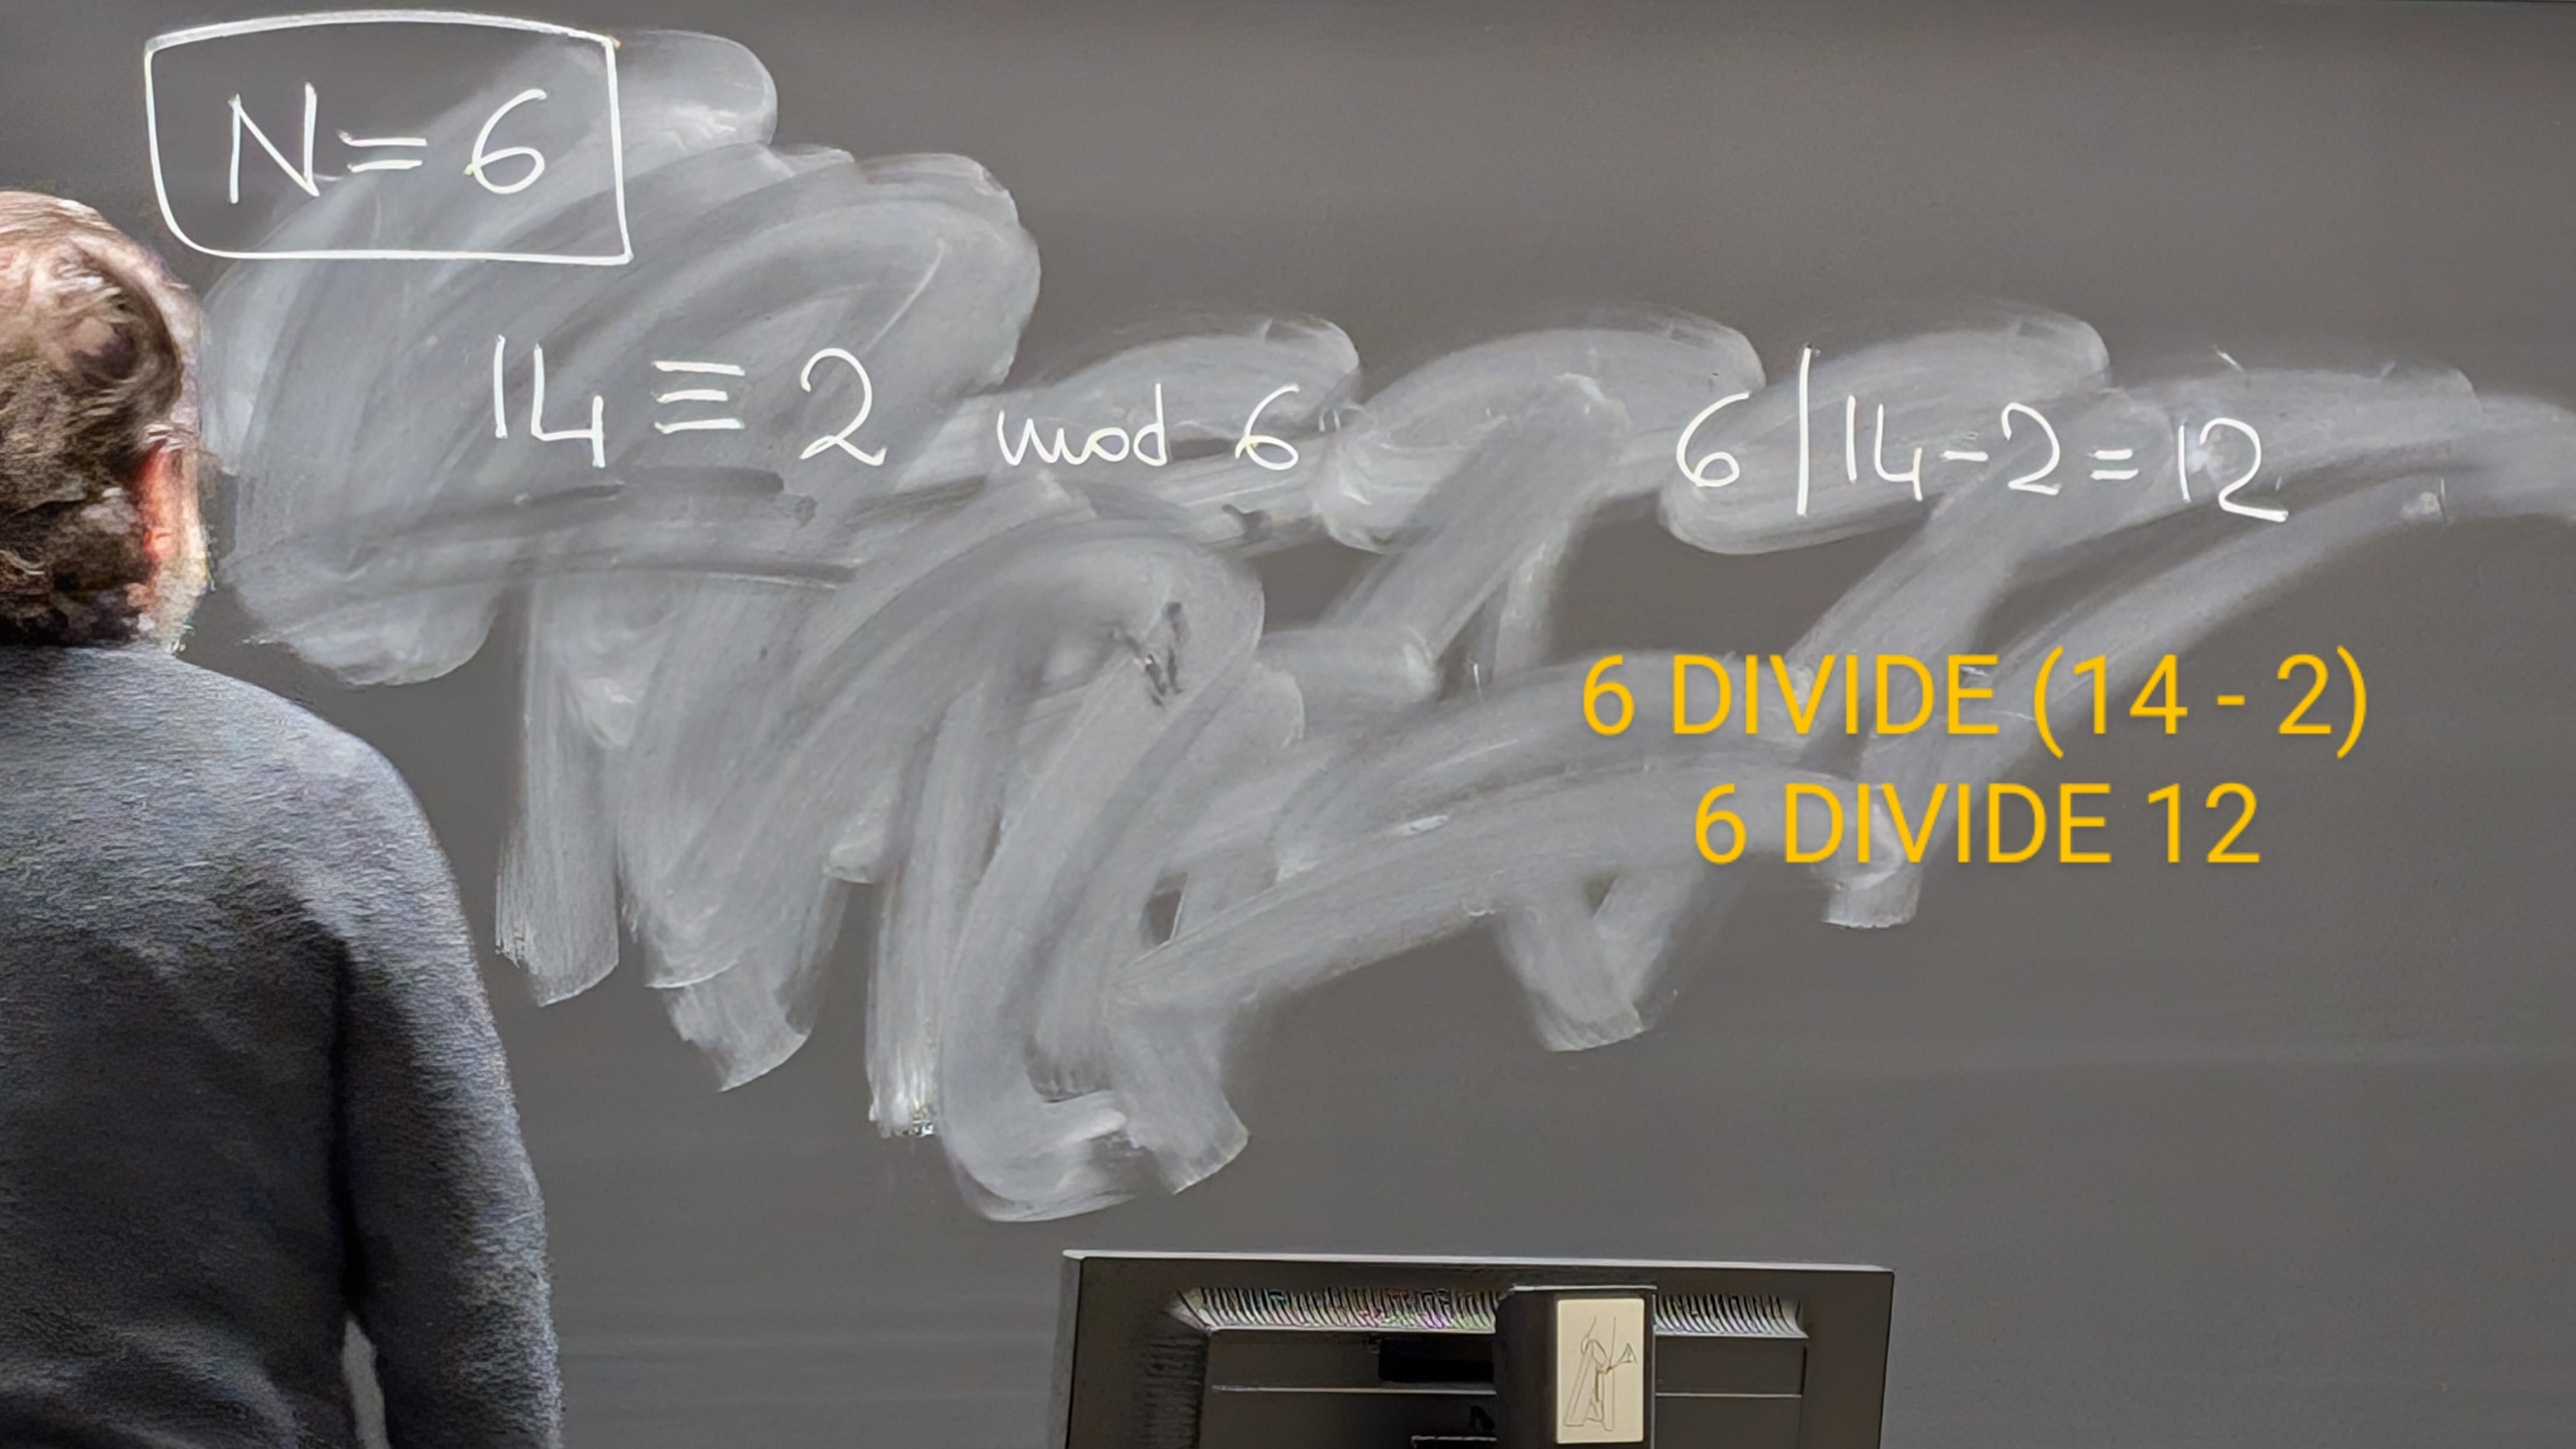 N = 6
14 ≡ 2 mod 6
6 | 14 - 2 = 12
6 DIVIDE (14 - 2)
6 DIVIDE 12